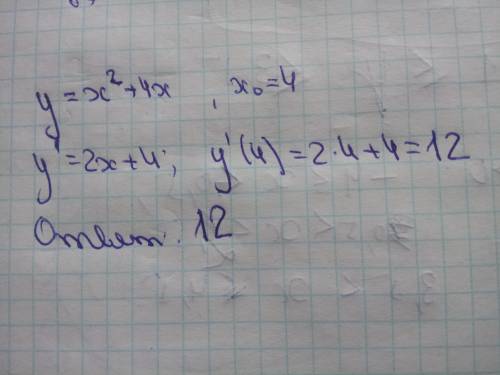 y = x² + 4x , x₀ = 4
y' = 2x + 4; y'(4) = 2·4 + 4 = 12
Ответ. 12